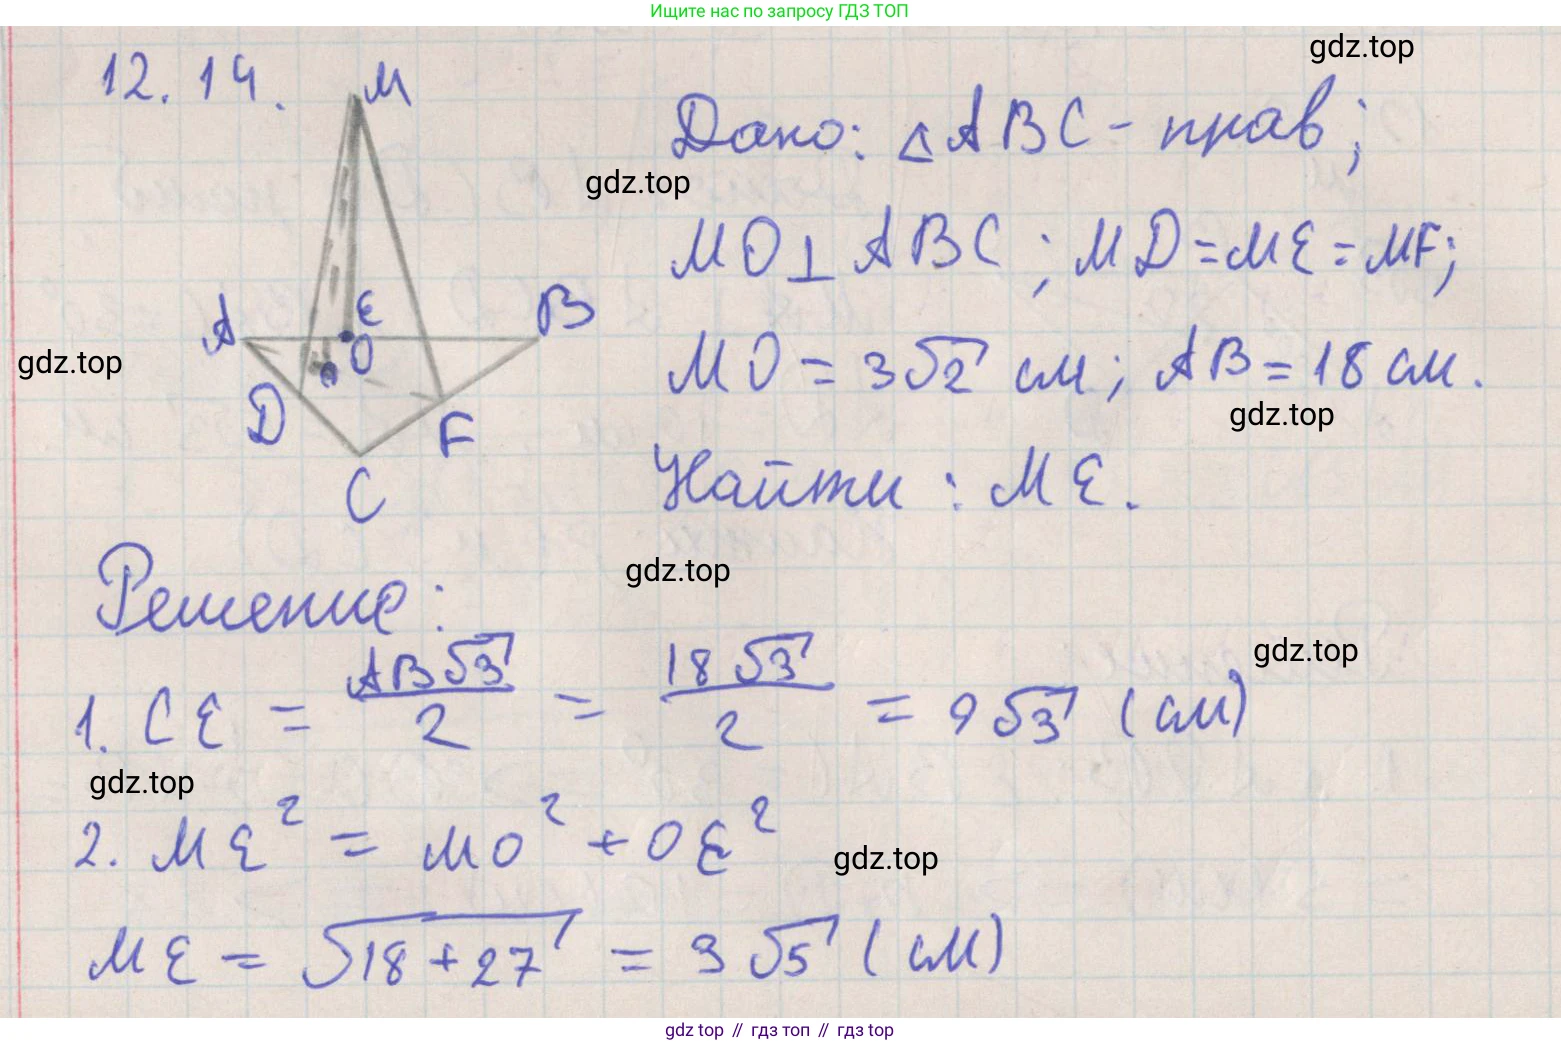 Ищите нас по запросу ГДЗ ТОП
12.14.
M
gdz.top
Дано: △ABC - прав;
gdz.top
MO⊥ABC; MD=ME=MF;
A E B
O
gdz.top
MO = 3√2 см; AB = 18 см.
gdz.top
D F
C
Найти: ME.
gdz.top
Решение:
gdz.top
1. CE = AB√3/2 = 18√3/2 = 9√3 (см)
gdz.top
2. ME² = MO² + OE²
gdz.top
ME = √18+27 = 3√5 (см)
gdz top // гдз топ // гдз top